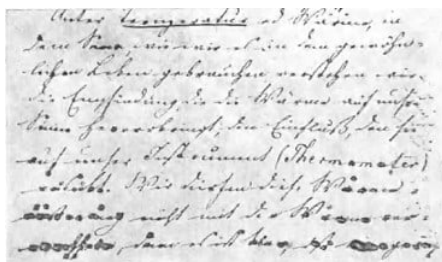 Unter Temperatur od Wärme, in
dem Sinne wie wir es in dem gewöhn-
lichen Leben gebrauchen verstehen wir
die Empfindung, die die Wärme auf unsre
Sinne hervorbringt; den Einfluß, den sie
auf unser Instrument (Thermometer)
ausübt. Wir dürfen diese Wärme-
nicht mit der Wärme ver-
denn es ist klar,